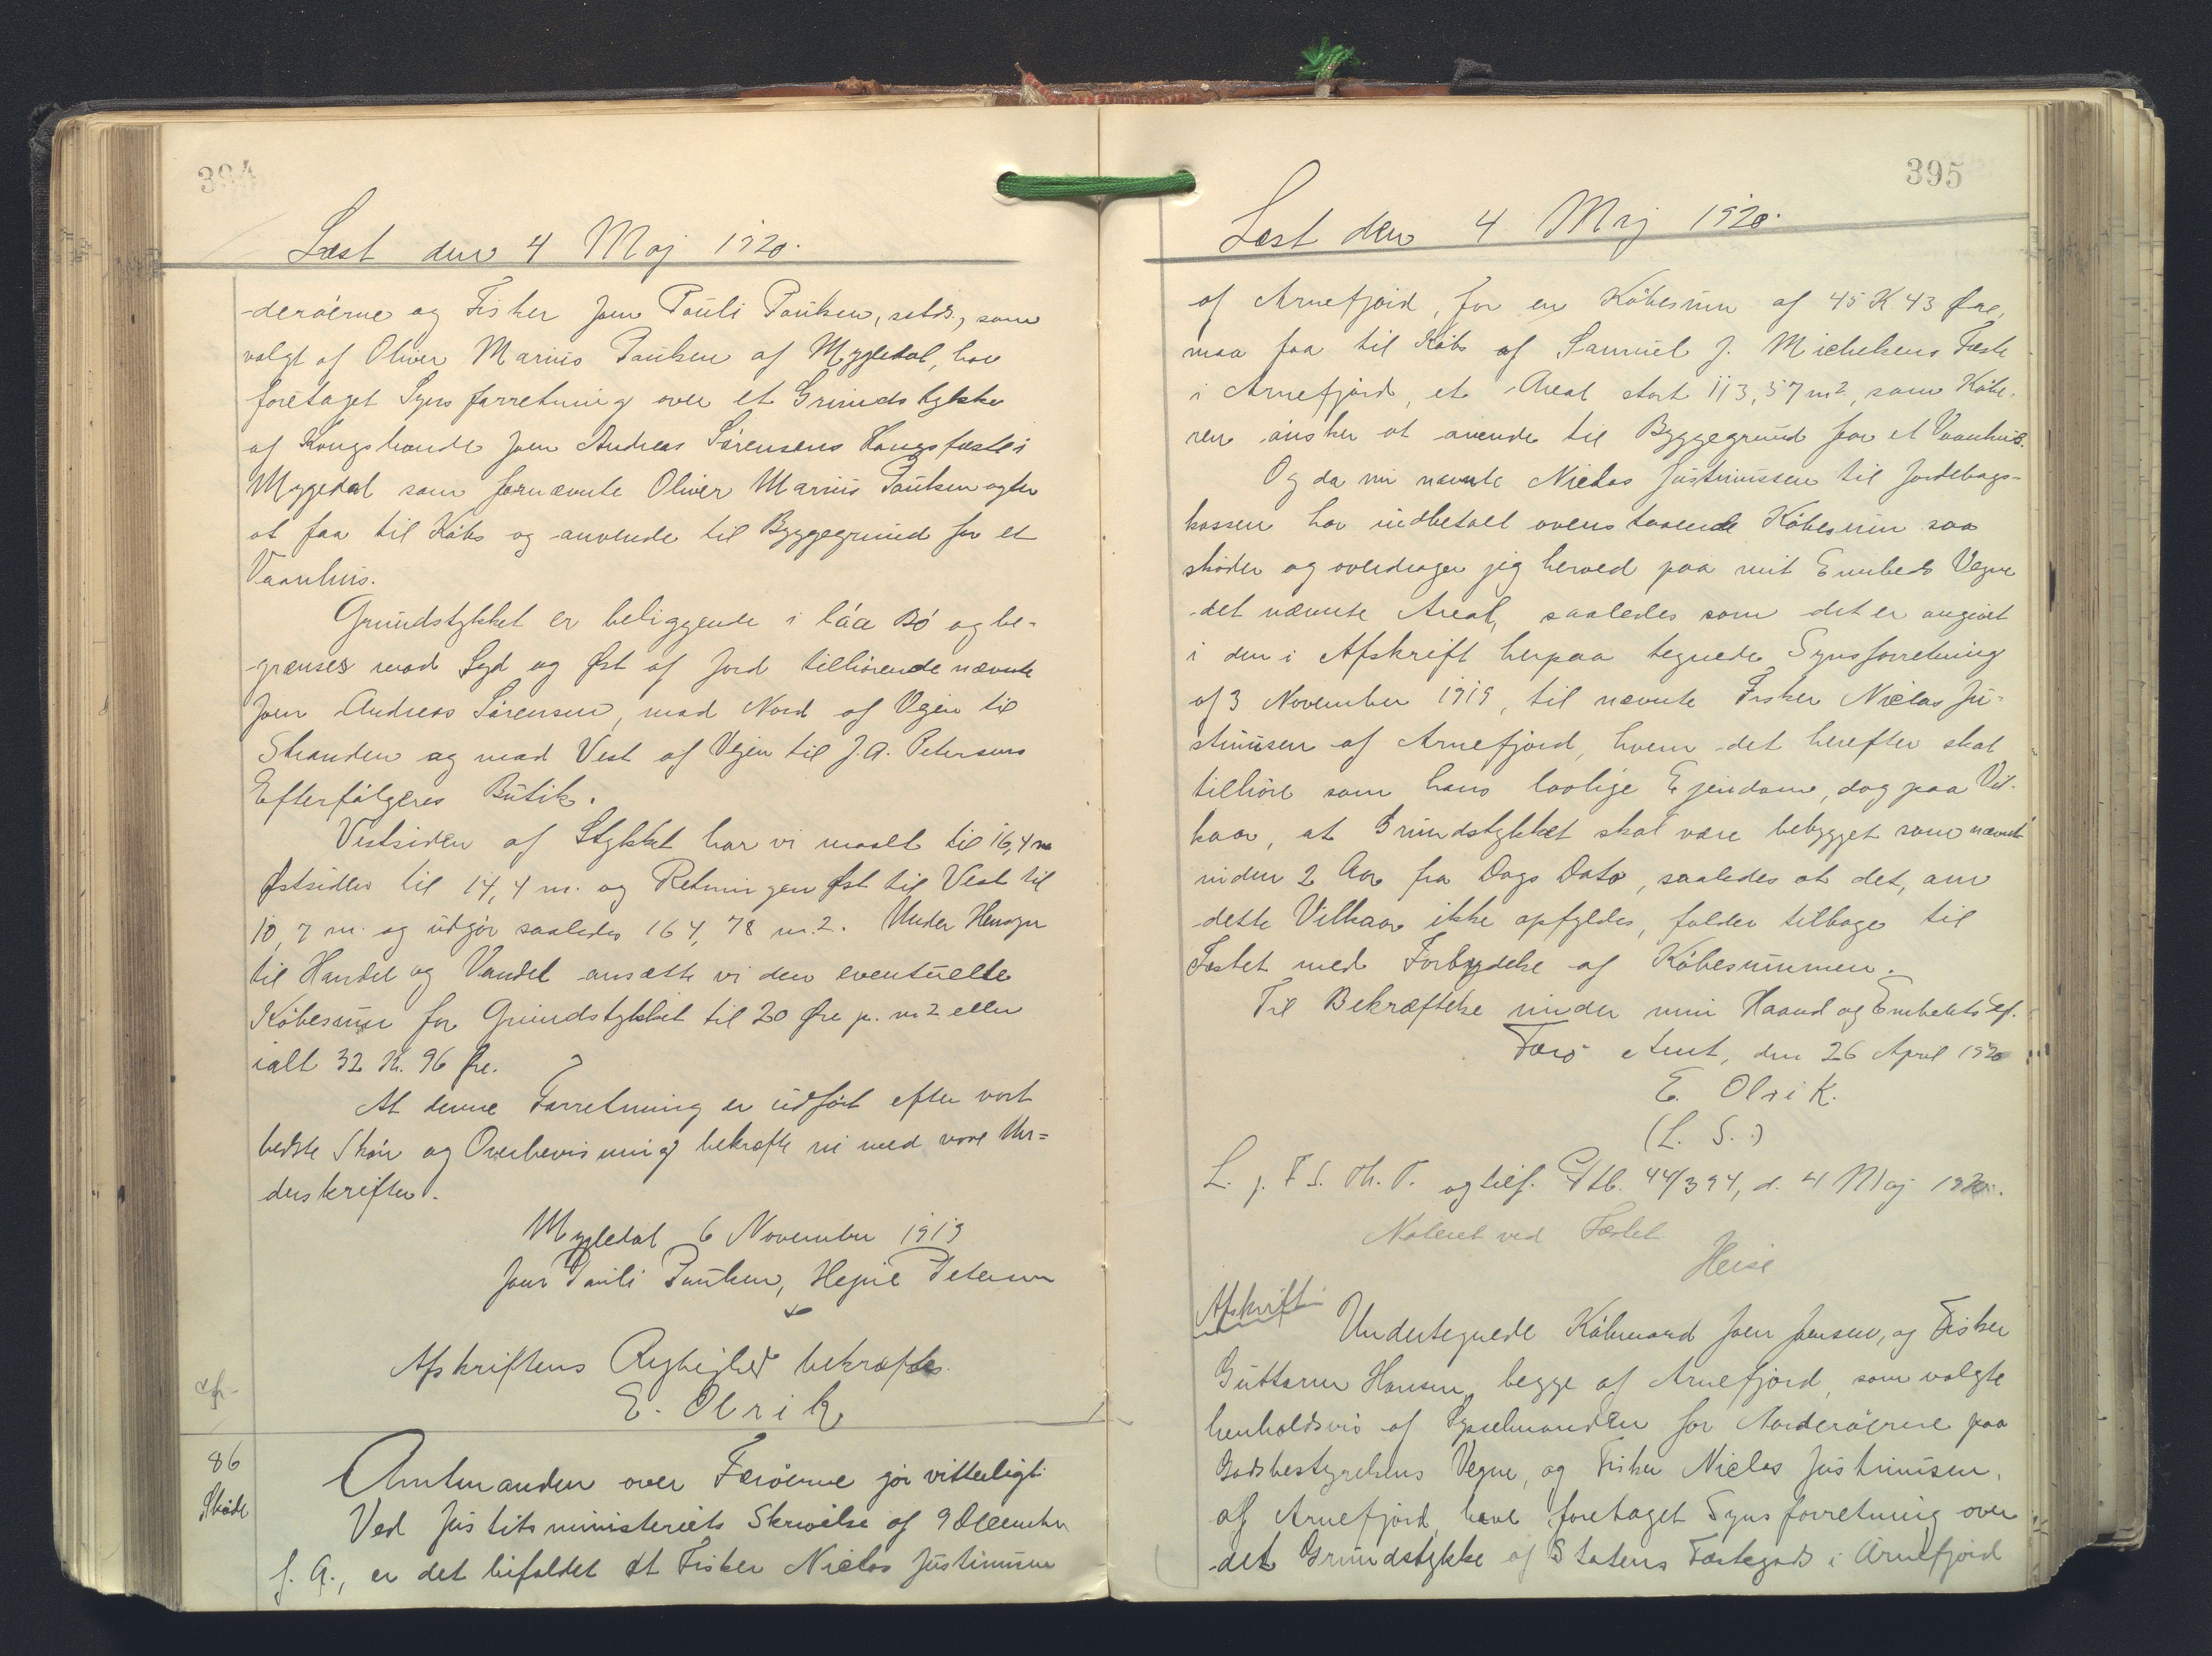 394
Læst den 4 Maj 1920.
-derøerne og Fisker Joen Pauli Paulsen, sstds., som
valgt af Oliver Marius Paulsen af Mygledal, har
foretaget Synsforretning over et Grundstykke
af Kongsbonde Joen Andreas Sørensens Kongsfæste i
Myggedal som førnævnte Oliver Marius Paulsen agter
at faa til Købs og anvende til Byggegrund for et
Vaanhus.
Grundstykket er beliggende i láa Bø og be-
-grænses mod Syd og Øst af Jord tilhørende nævnte
Joen Andreas Sørensen, mod Nord af Vejen til
Stranden og mod Vest af Vejen til J.A. Petersens
Efterfølgeres Butik.
Vestsiden af Stykket har vi maalt til 16,4 m
Østsiden til 14,4 m. og Retningen Øst til Vest til
10,7 m. og udgør saaledes 164,78 m.2. Under Hensyn
til Handel og Vandel ansætte vi den eventuelle
Købesum for Grundstykket til 20 Øre p. m2 eller
ialt 32 K. 96 Øre.
At denne Forretning er udført efter vort
bedste Skøn og Overbevisning bekræfte vi med vore Un=
derskrifter.
Mygledal 6 November 1919
Joen Pauli Paulsen, Petersen
Afskriftens Rigtighed bekræftes.
E. Olrik
86
Skøde
Amtmanden over Færøerne gør vitterligt:
Ved Justitsministeriets Skrivelse af 9 December
f. A., er det bifaldet at Fisker Niclas Justinussen
395
Læst den 4 Maj 1920.
af Arnefjord, for en Købesum af 45 K 43 Øre,
maa faa til Købs af Samuel J. Michelsens Fæste
i Arnefjord, et Areal stort 113,57 m2, som Købe-
ren ønsker at anvende til Byggegrund for et Vaanhus.
Og da nu nævnte Niclas Justinussen til Jordebogs-
kassen har indbetalt ovenstaaende Købesum saa
skøder og overdrager jeg herved paa mit Embeds Vegne
det nævnte Areal, saaledes som det er angivet
i den i Afskrift herpaa tegnede Synsforretning
af 3 November 1919, til nævnte Fisker Niclas Ju-
stinusen af Arnefjord, hvem det herefter skal
tilhøre som hans lovlige Ejendom, dog paa Vil-
kaar, at Grundstykket skal være bebygget som nævnt
inden 2 Aar fra Dags Dato, saaledes at det, om
dette Vilkaar ikke opfyldes, falder tilbage til
Fæstet med Fortydelse af Købesummen.
Til Bekræftelse under min Haand og Embedets Sgl.
Færø Amt, den 26 April 1920
E. Olrik.
(L. S.)
L. j. F S. Th. T. og tilf. Ptb. 44/394, d. 4 Maj 1920.
Noteret ved Fæstet
Heise
Afskrift
Undertegnede Købmand Joen Joensen, og Fisker
Guttorm Hansen, begge af Arnefjord, som valgte
henholdsvis af Sysselmanden for Norderøerne paa
Godsbestyrelsens Vegne, og Fisker Niclas Justinusen,
af Arnefjord have foretaget Synsforretning over
det Grundstykke af Statens Fæstegods i Arnefjord